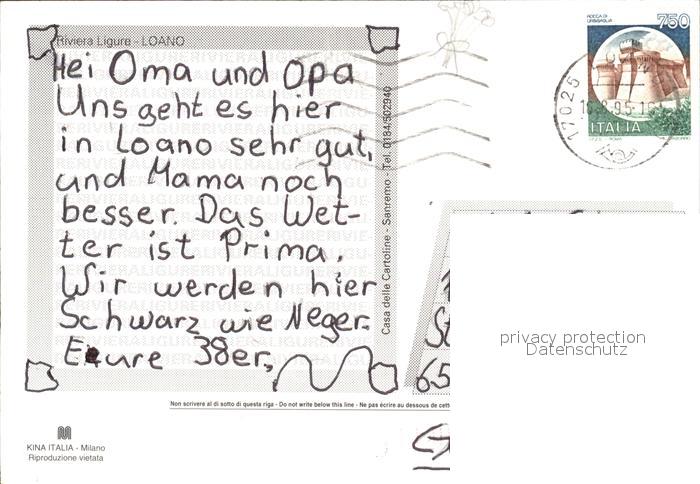 Riviera Ligure - LOANO
Hei Oma und Opa
Uns geht es hier
in Loano sehr gut,
und Mama noch
besser. Das Wet-
ter ist Prima.
Wir werden hier
Schwarz wie Neger.
Eure 38er,
Casa delle Cartoline - Sanremo - Tel. 0184/502940
ROCCA DI
URBISAGLIA
750
ITALIA
17025
privacy protection
Datenschutz
St
65
Non scrivere al di sotto di questa riga - Do not write below this line - Ne pas écrire au dessous de cett
KINA ITALIA - Milano
Riproduzione vietata